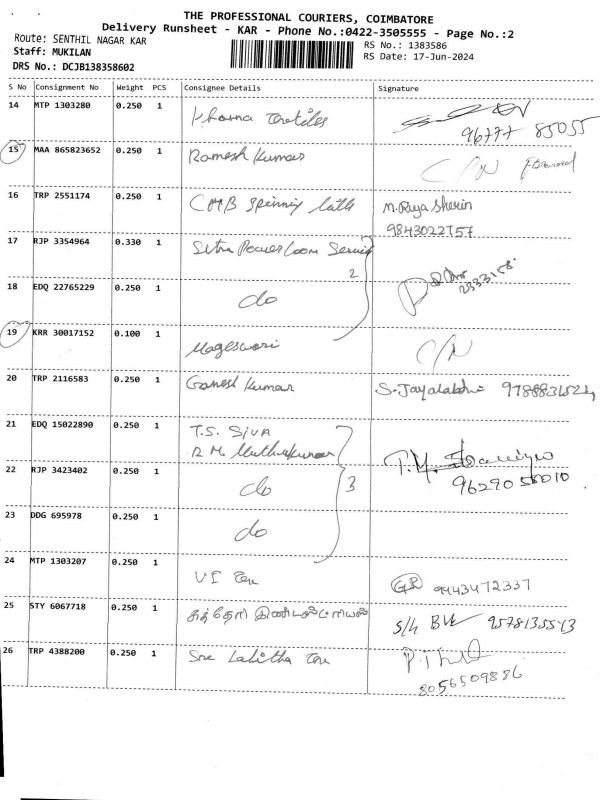 THE PROFESSIONAL COURIERS, COIMBATORE
Delivery Runsheet - KAR - Phone No.:0422-3505555 - Page No.:2
Route: SENTHIL NAGAR KAR
RS No.: 1383586
Staff: MUKILAN
RS Date: 17-Jun-2024
DRS No.: DCJB138358602
S No Consignment No Weight PCS Consignee Details Signature
14 MTP 1303280 0.250 1
96777 85055
15 MAA 865823652 0.250 1 Ramesh Kumar C/N
16 TRP 2551174 0.250 1 CMB Spinnig M. Riya Sherin
9843022757
17 RJP 3354964 0.330 1 Sitra Power loom Service
2
18 EDQ 22765229 0.250 1 do
19 KRR 30017152 0.100 1 Mageswari C/N
20 TRP 2116583 0.250 1 Ganesh Kumar
21 EDQ 15022890 0.250 1 T.S. Siva
R M. Muthukumar
22 RJP 3423402 0.250 1 do 3
23 DDG 695978 0.250 1 do
24 MTP 1303207 0.250 1 VI GR 9443472337
25 STY 6067718 0.250 1 S/h
26 TRP 4388200 0.250 1 Sree Lalitha
8056509886